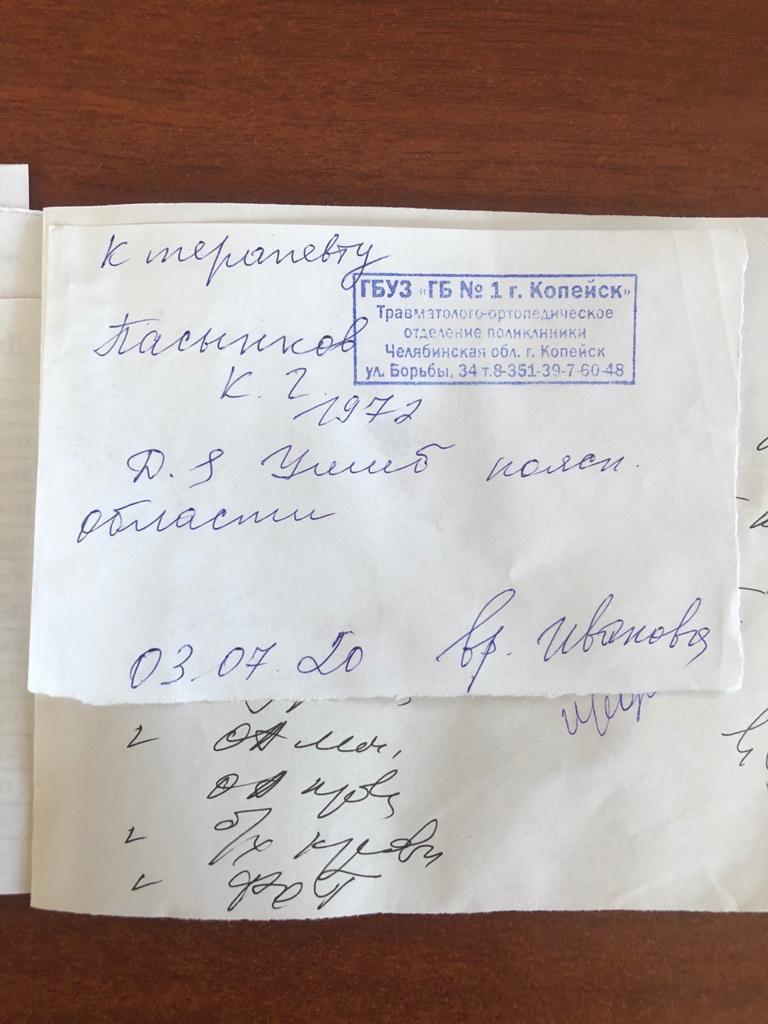 К терапевту
ГБУЗ «ГБ № 1 г. Копейск»
Травматолого-ортопедическое
отделение поликлиники
Челябинская обл. г. Копейск
ул. Борьбы, 34 т.8-351-39-7-60-48
Пасынков
К. Г.
1972
Д.S Ушиб поясн.
области
03.07.20 вр. Иванова
ОА моч,
ОА кров
б/х крови